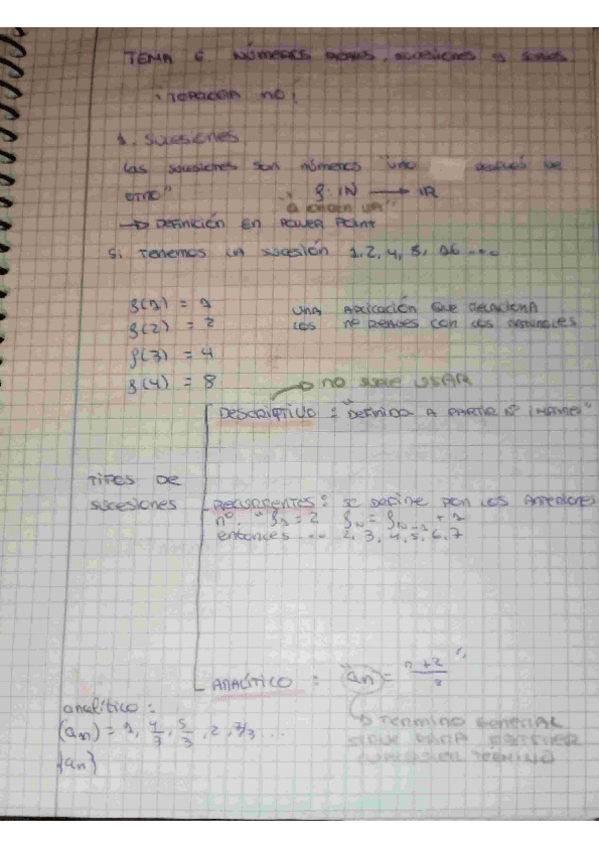 TEMA 6. NÚMEROS REALES, SUCESIONES Y SERIES
• TOPOLOGÍA NO!
1. SUCESIONES
Las sucesiones son números "uno después de
otro" f: IN → IR
→ Definición en Power Point
Si tenemos la sucesión 1, 2, 4, 8, 16 ...
f(1) = 1 una aplicación que relaciona
f(2) = 2 los nº reales con los naturales
f(3) = 4
f(4) = 8
→ no suele usar
Descriptivo : "Definida a partir nº
TIPOS DE
sucesiones
Recurrentes : se define por los anteriores
nº. "f1 = 2 fN = fN-1 + 1
entonces ... 2, 3, 4, 5, 6, 7
ANALÍTICO : "an = n+2/3"
analítico :
(an) = 1, 4/3, 5/3, 2, 7/3 ...
{an}
→ Termino General
sirve para obtener
cualquier termino